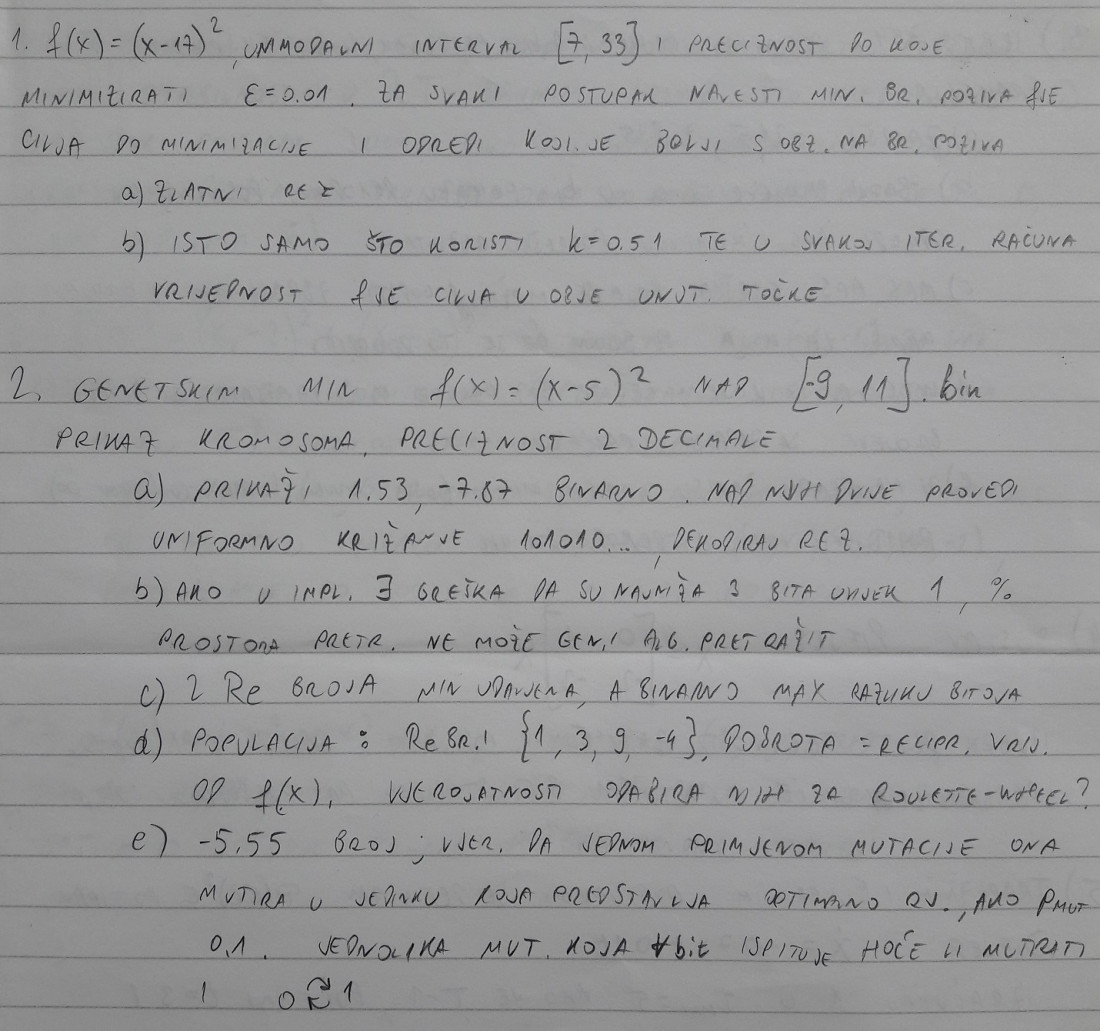 1. f(x) = (x-17)², UNIMODALNI INTERVAL [7, 33] I PRECIZNOST DO KOJE
MINIMIZIRATI ε=0.01. ZA SVAKI POSTUPAK NAVESTI MIN. BR. POZIVA fJE
CILJA DO MINIMIZACIJE I ODREDI KOJI JE BOLJI S OBZ. NA BR. POZIVA
a) ZLATNI REZ
b) ISTO SAMO ŠTO KORISTI k=0.51 TE U SVAKOJ ITER. RAČUNA
VRIJEDNOST fJE CILJA U OBJE UNUT. TOČKE
2. GENETSKIM MIN f(x) = (x-5)² NAD [-9, 11]. bin
PRIKAZ KROMOSOMA, PRECIZNOST 2 DECIMALE
a) PRIKAŽI 1.53, -7.87 BINARNO. NAD NJIH DVIJE PROVEDI
UNIFORMNO KRIŽANJE 101010..., DEKODIRAJ REZ.
b) AKO U IMPL. ∃ GREŠKA DA SU NAJNIŽA 3 BITA UVIJEK 1, %
PROSTORA PRETR. NE MOŽE GEN. ALG. PRETRAŽIT
c) 2 Re BROJA MIN UDALJENA, A BINARNO MAX RAZLIKU BITOVA
d) POPULACIJA: Re BR. {1, 3, 9, -4}, DOBROTA = RECIPR. VRIJ.
OD f(x), VJEROJATNOSTI ODABIRA NJIH ZA ROULETTE-WHEEL?
e) -5,55 BROJ; VJER. DA JEDNOM PRIMJENOM MUTACIJE ONA
MUTIRA U JEDINKU KOJA PREDSTAVLJA OPTIMALNO RJ., AKO PMUT
0,1. JEDNOLIKA MUT. KOJA ∀bit ISPITUJE HOĆE LI MUTIRATI
I 0 ⇄ 1